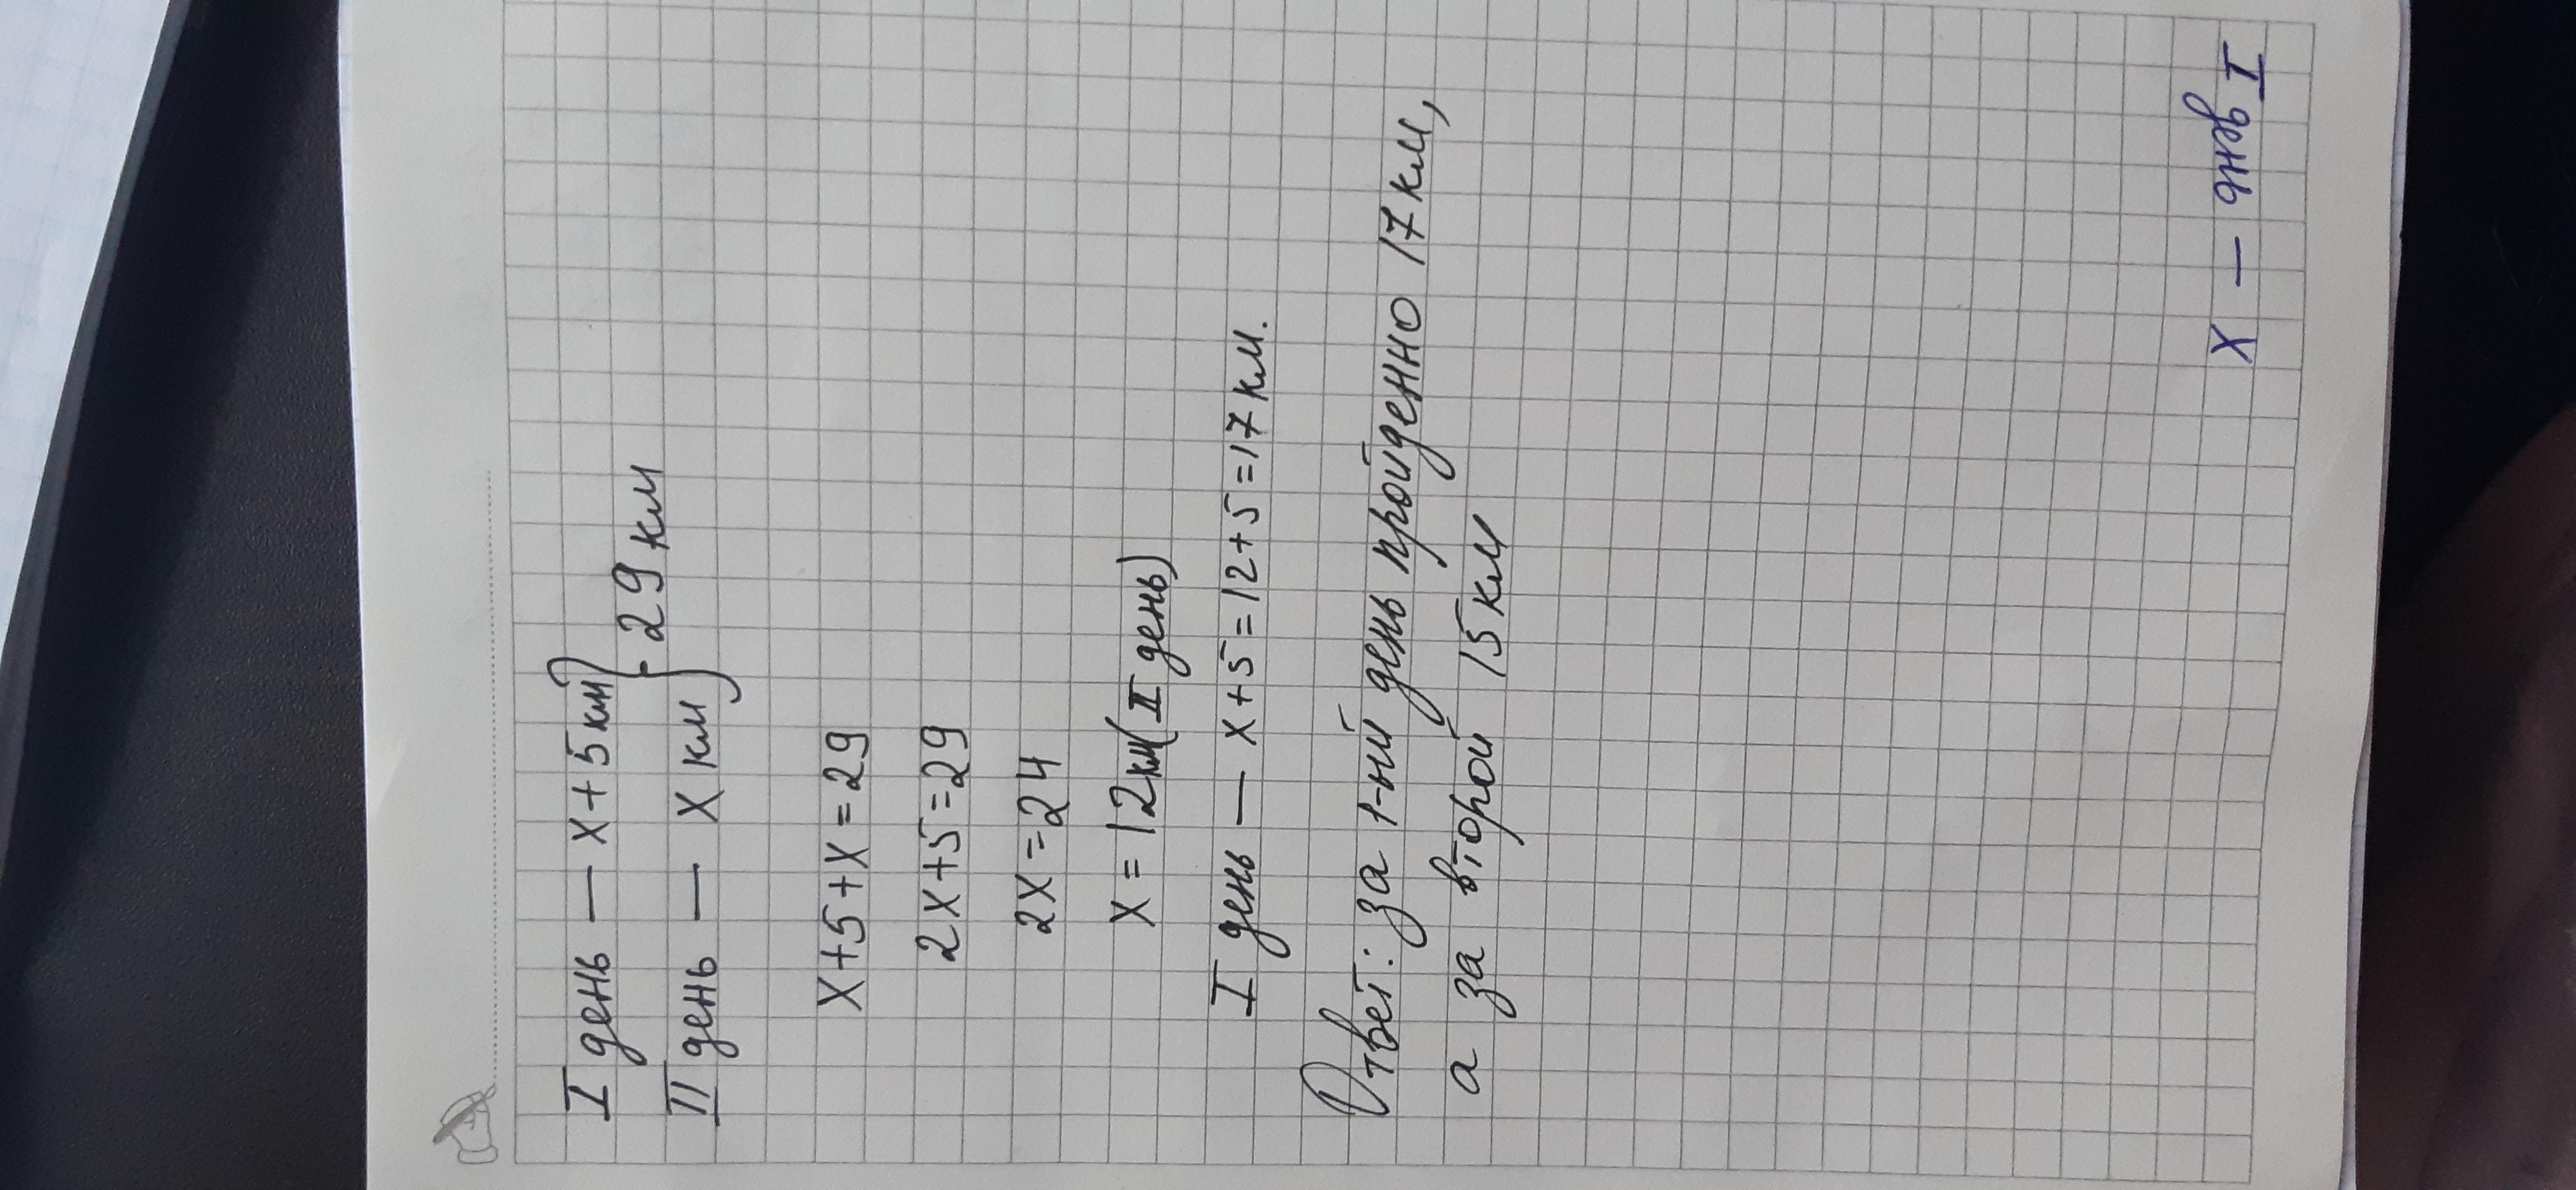 I день — х + 5 км
II день — х км } 29 км
х+5+х=29
2х+5=29
2х=24
х=12км(II день)
I день — х+5=12+5=17км.
Ответ: за 1-ий день пройденно 17км,
а за второй 15км
I день — х